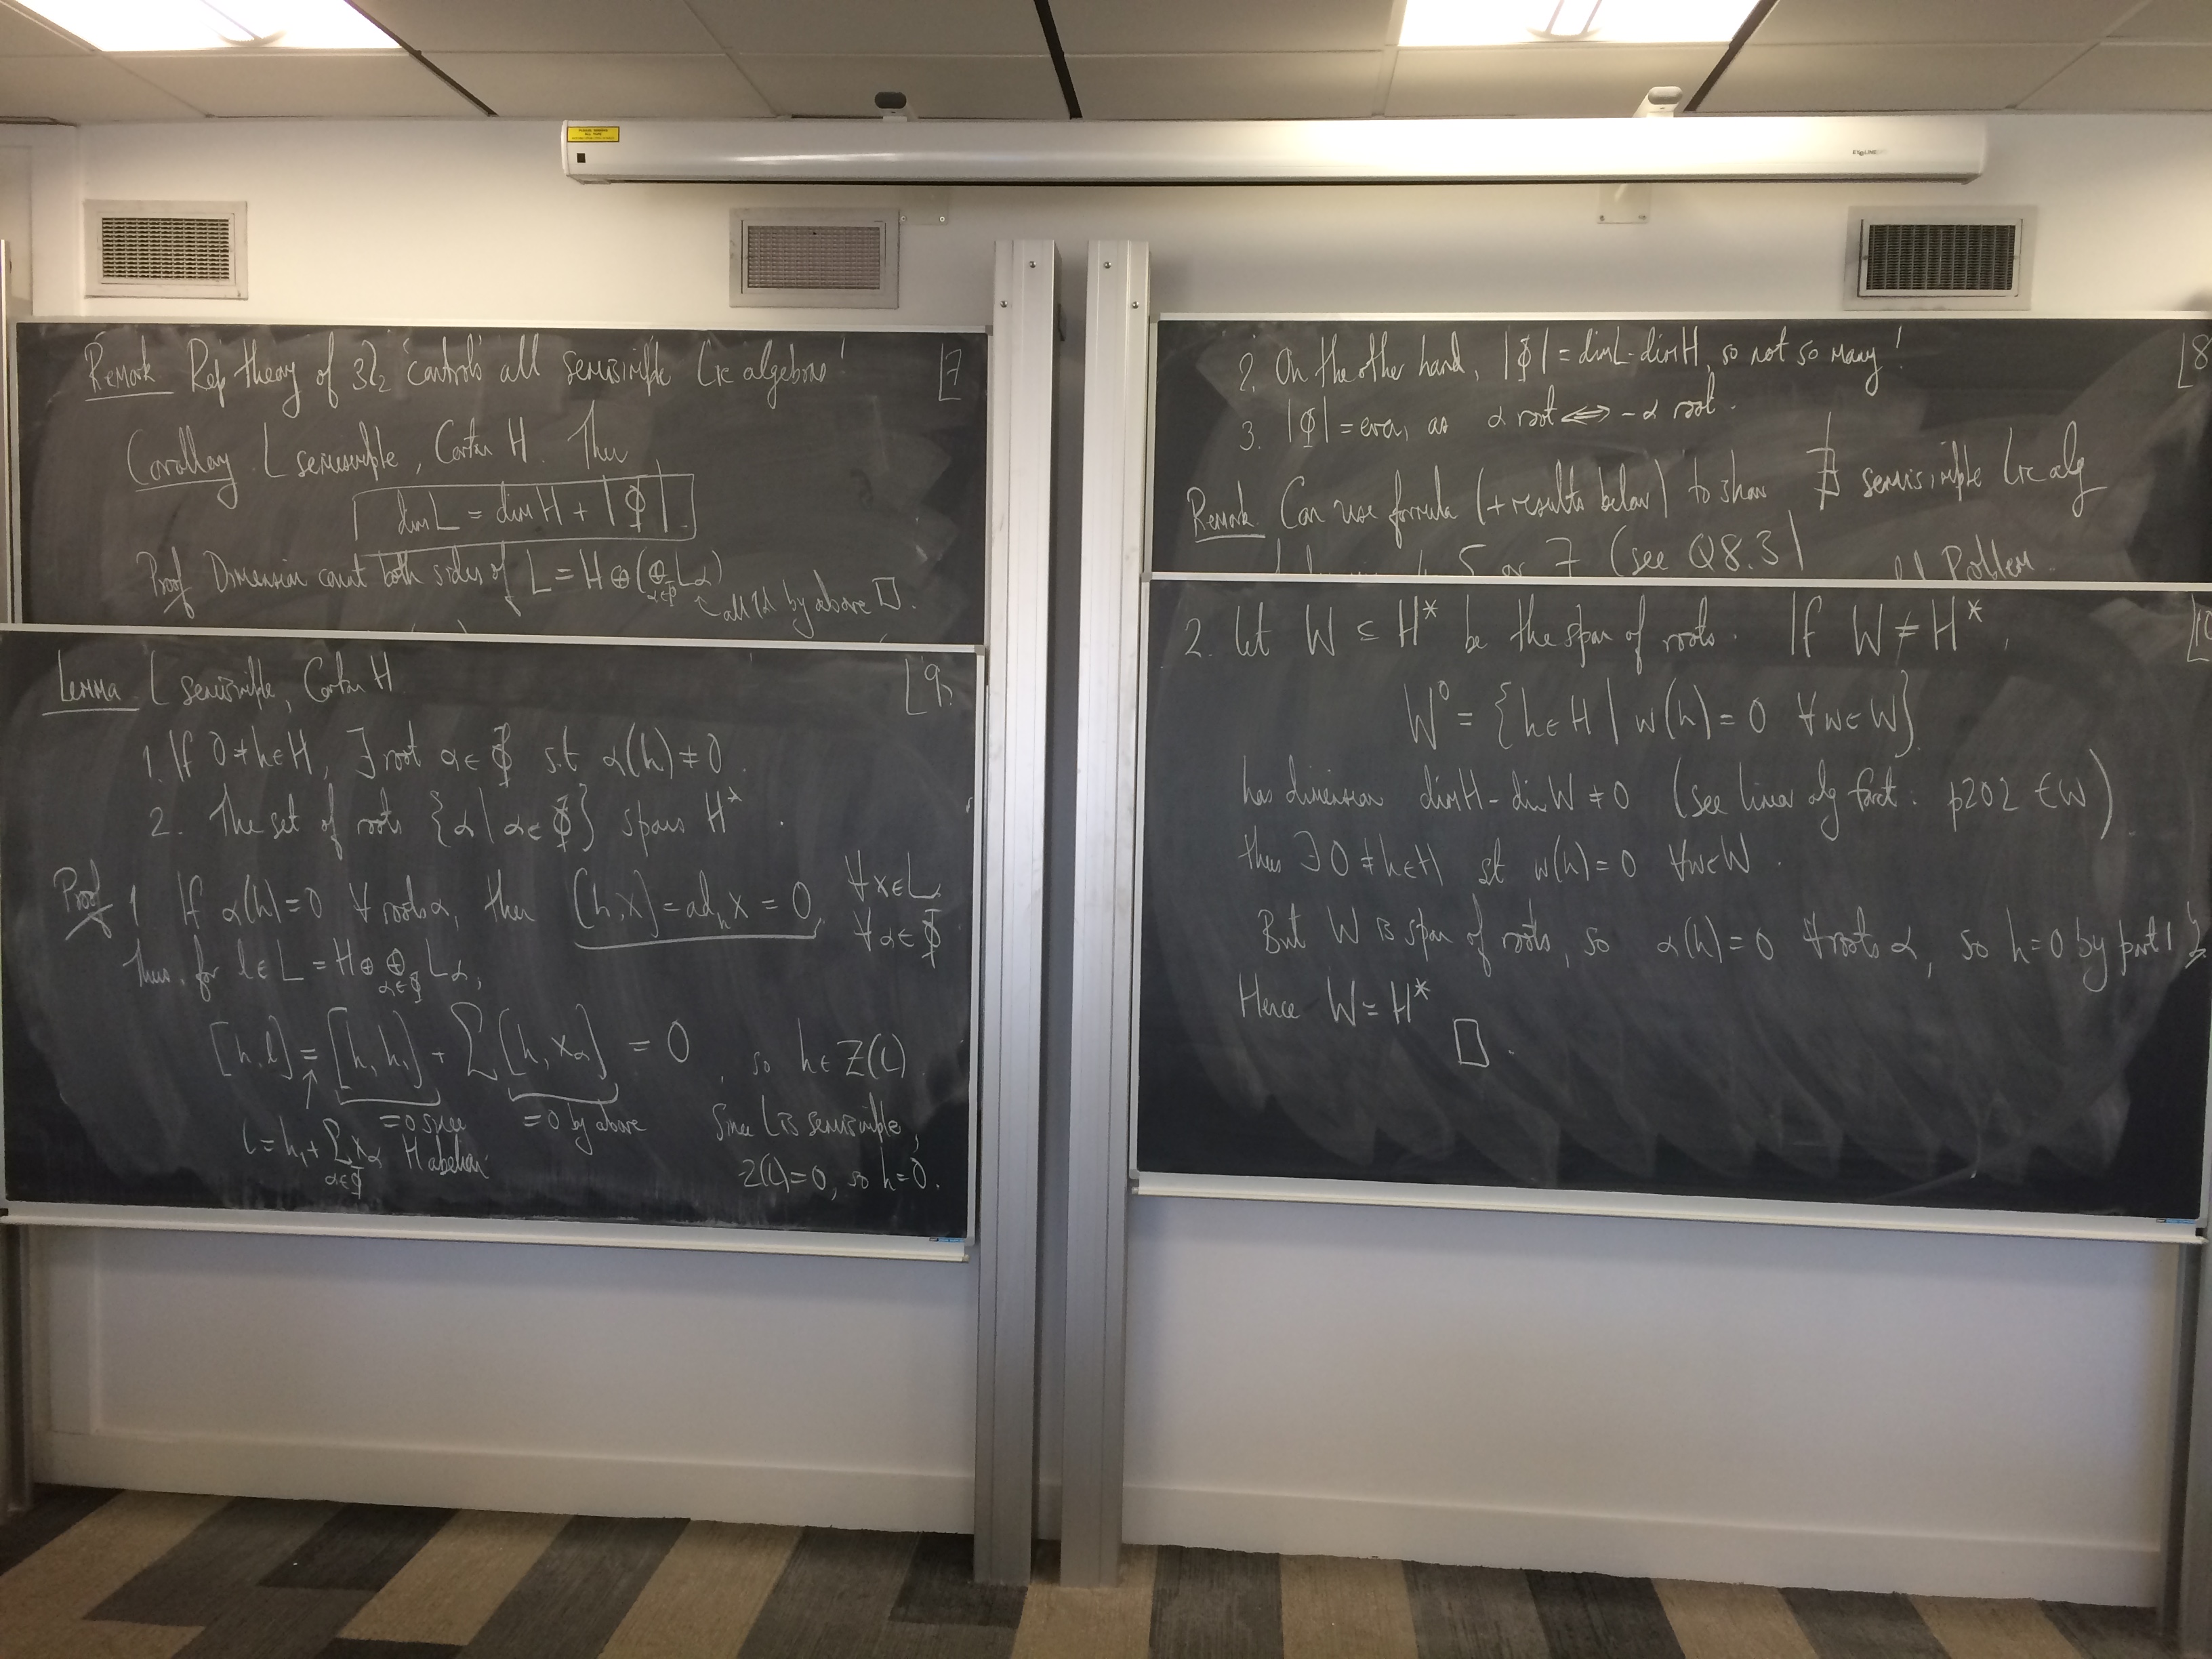 Remark Rep theory of sl₂ 'controls' all semisimple Lie algebras! [7
Corollary. L semisimple, Cartan H. Then
dim L = dim H + |Φ|.
Proof Dimension count both sides of L = H ⊕ (⊕ L_α)
α∈Φ
↖ all 1d by above □.
Lemma. L semisimple, Cartan H. [9
1. If 0 ≠ h ∈ H, ∃ root α ∈ Φ s.t α(h) ≠ 0.
2. The set of roots {α | α ∈ Φ} spans H*.
Proof 1 If α(h) = 0 ∀ roots α, then [h, x] = ad_h x = 0, ∀ x ∈ L_α
∀ α ∈ Φ
Thus, for l ∈ L = H ⊕ ⊕ L_α,
α∈Φ
[h, l] = [h, h₁] + Σ [h, x_α] = 0, so h ∈ Z(L).
↑ = 0 since = 0 by above Since L is semisimple,
l = h₁ + Σ x_α H abelian Z(L) = 0, so h = 0.
α∈Φ
2. On the other hand, |Φ| = dim L - dim H, so not so many! [8
3. |Φ| = even, as α root ⟺ -α root.
Remark. Can use formula (+ results below) to show ∄ semisimple Lie alg
5 or 7 (see Q8.3) Problem.
2. Let W ⊆ H* be the span of roots. If W ≠ H*, [10
W° = {h ∈ H | w(h) = 0 ∀ w ∈ W}
has dimension dim H - dim W ≠ 0 (see linear alg fact: p202 EW)
thus ∃ 0 ≠ h ∈ H st w(h) = 0 ∀ w ∈ W.
But W is span of roots, so α(h) = 0 ∀ roots α, so h = 0 by part 1
Hence W = H*
□.